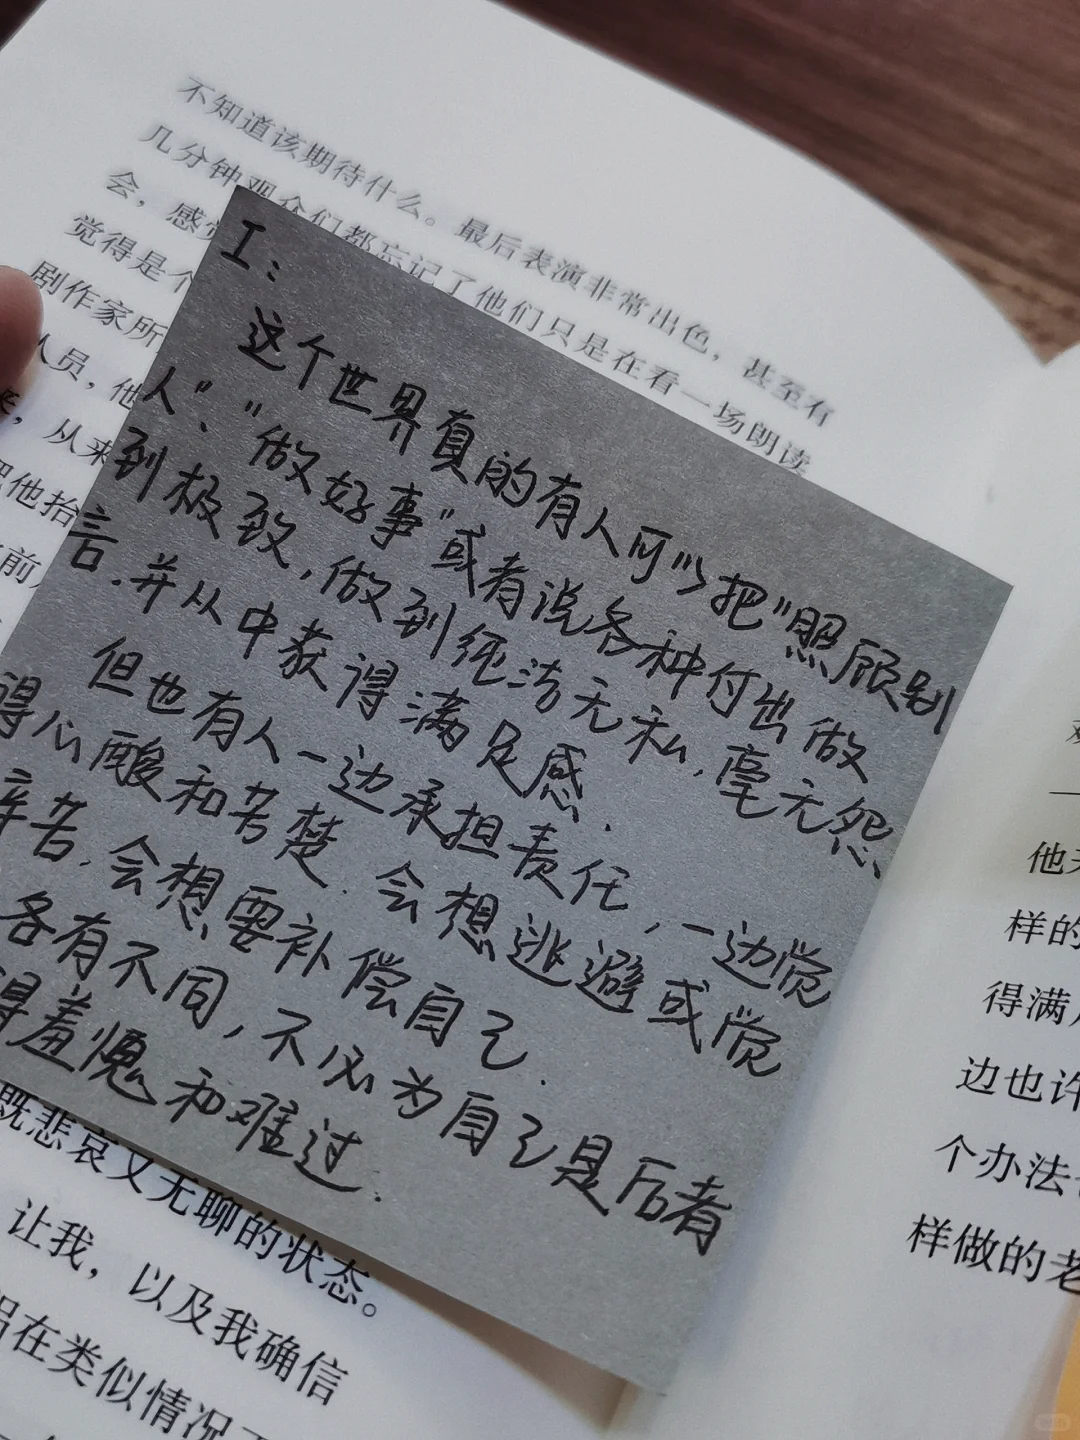 不知道该期待什么。最后表演非常出色，甚至有
几分钟观众们都忘记了他们只是在看一场朗读
会，感觉
觉得是个
剧作家所
人员，他
从来
把他抬
前
I：
这个世界真的有人可以把"照顾别
人"、"做好事"或者说各种付出做
到极致，做到纯洁无私，毫无怨
言.并从中获得满足感.
但也有人一边承担责任，一边觉
得心酸和苦楚.会想逃避或觉
辛苦.会想要补偿自己.
各有不同，不必为自己是后者
得羞愧和难过.
既悲哀又无聊的状态。
让我，以及我确信
在类似情况
他
样的
得满
边也许
个办法
样做的老